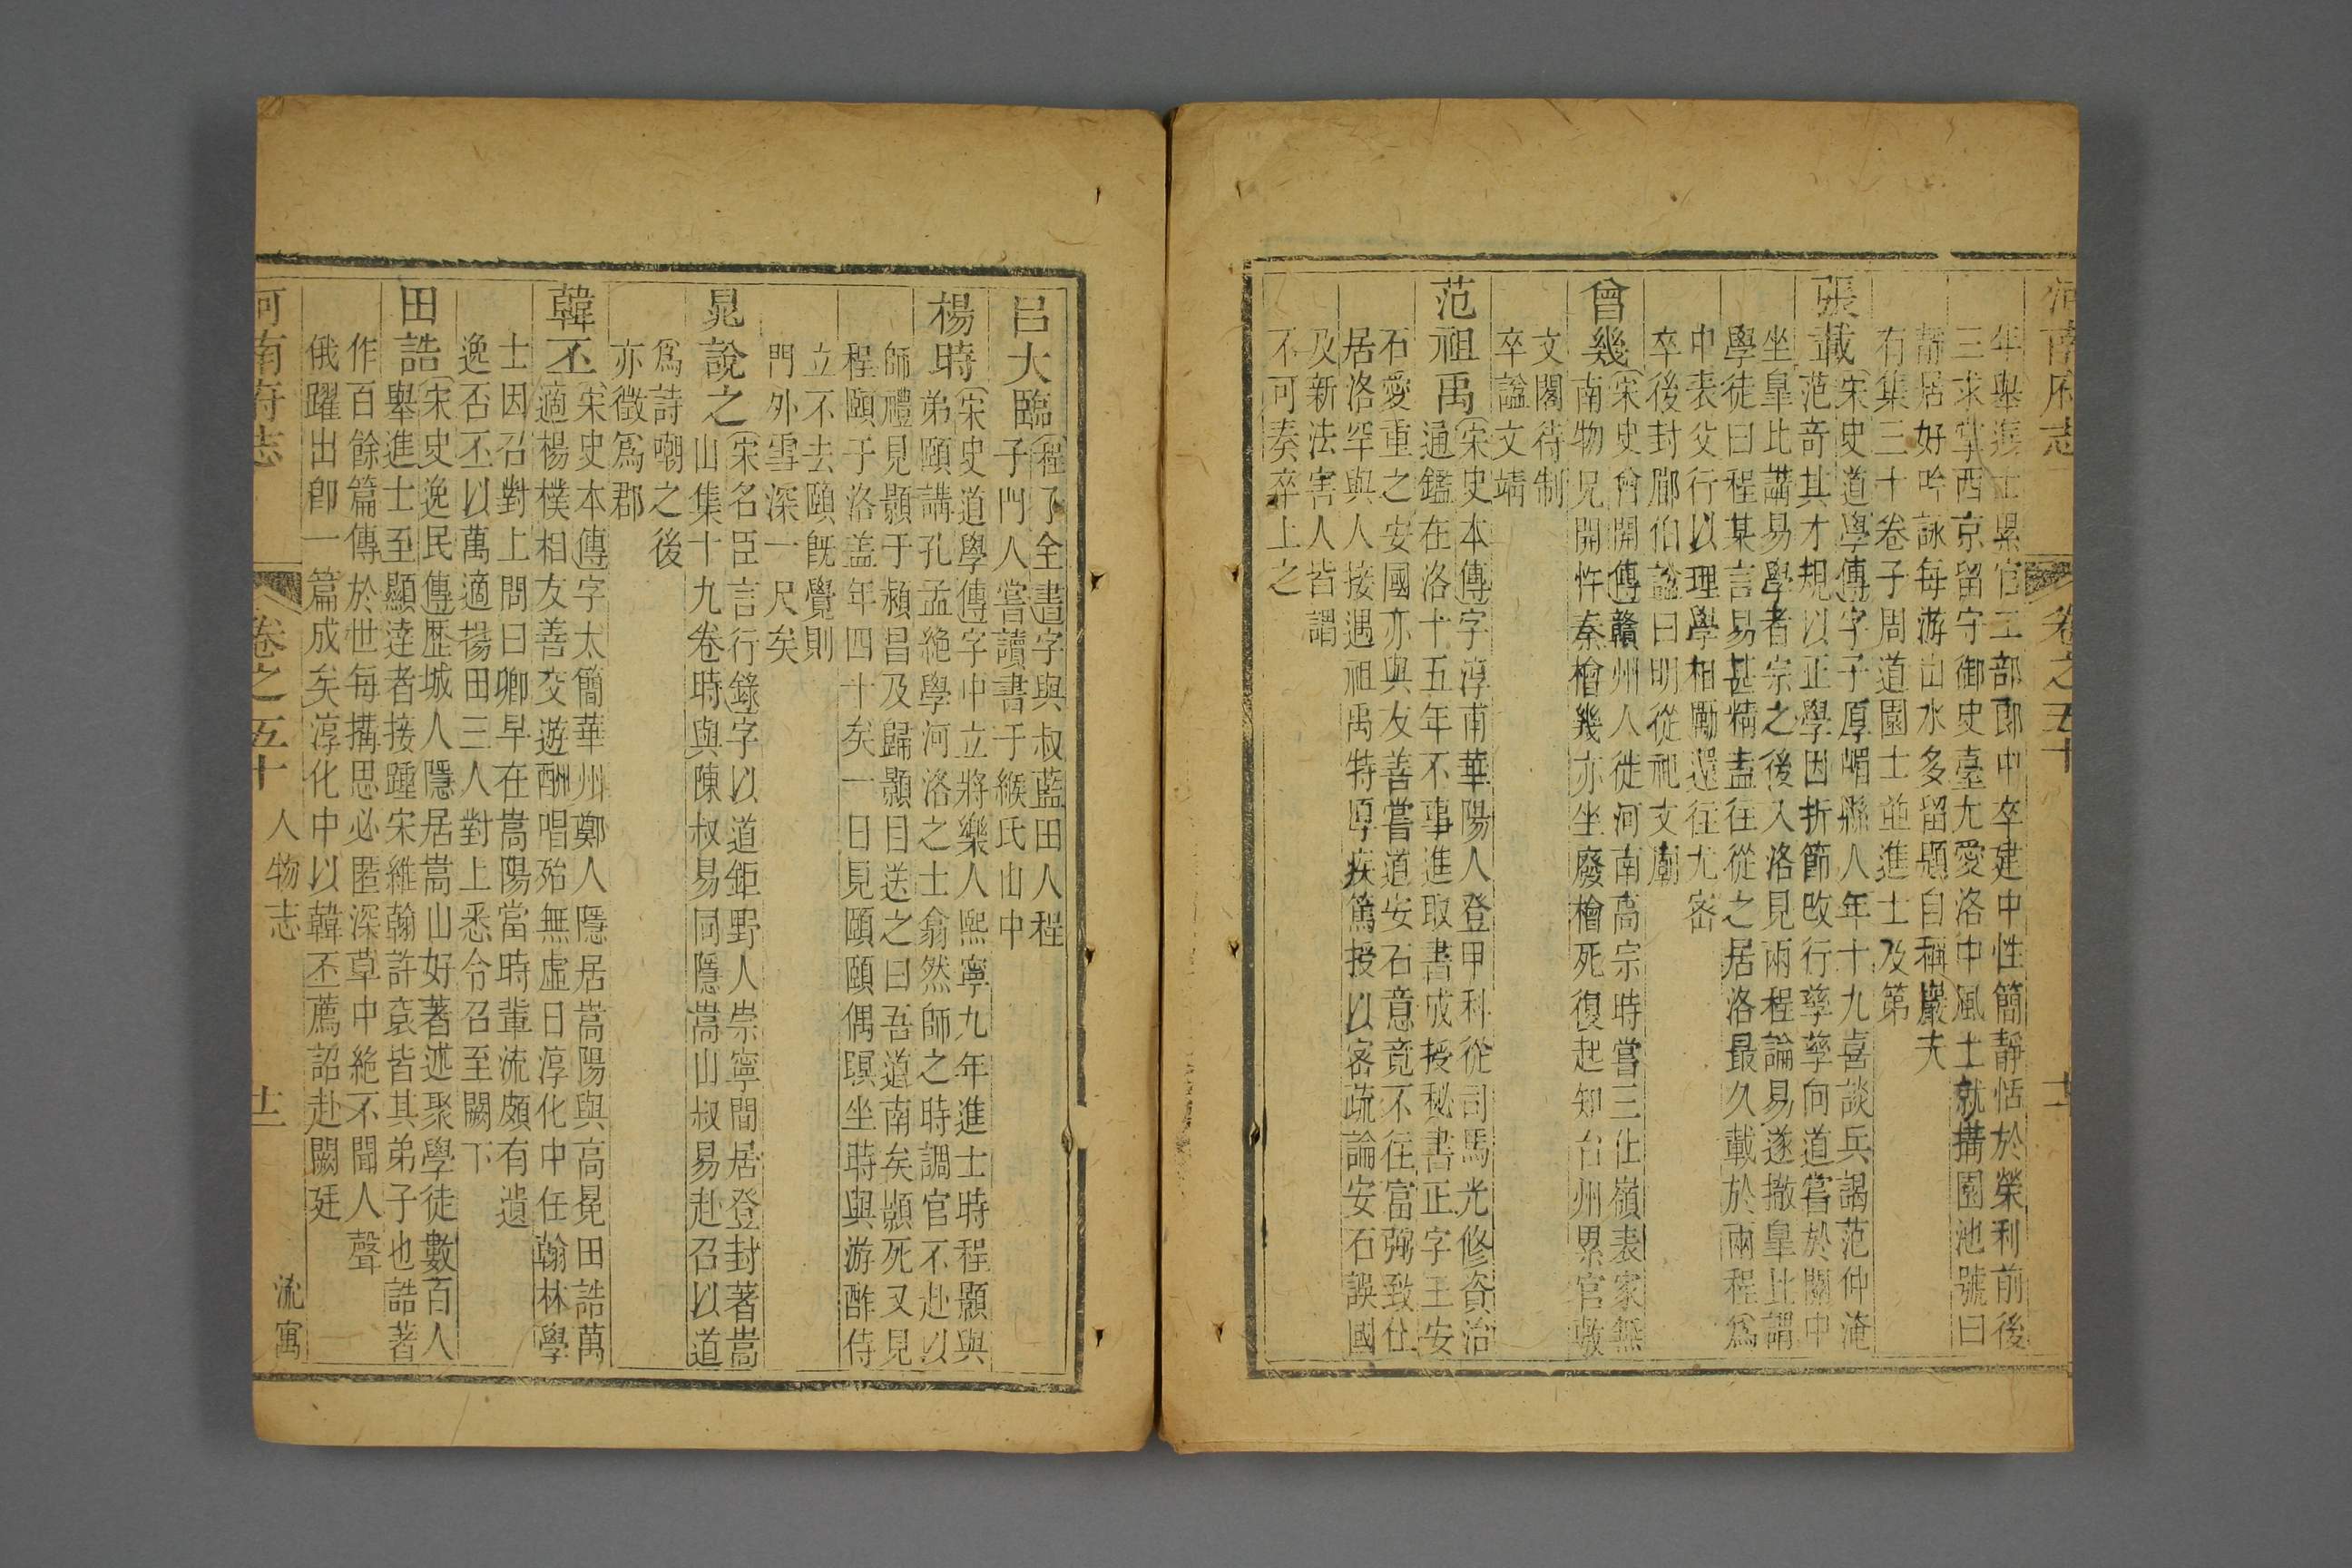 河南府志 卷之五十 十一
年舉進士累官工部郎中卒建中性簡靜恬於榮利前後
三求掌西京留守御史臺尤愛洛中風土就搆園池號曰
靜居好吟詠每游山水多留題自稱巖夫
有集三十卷子周道周士並進士及第
張載 宋史道學傳字子厚郿縣人年十九喜談兵謁范仲淹
范奇其才規以正學因折節改行孳孳向道嘗於關中
坐皐比講易學者宗之後入洛見兩程論易遂撤皐比謂
學徒曰程某言易甚精盍往從之居洛最久載於兩程爲
中表父行以理學相勵還往尤密
卒後封郿伯諡曰明從祀文廟
曾幾 宋史曾開傳贛州人徙河南高宗時嘗三仕嶺表家無
南物兄開忤秦檜幾亦坐廢檜死復起知台州累官敷
文閣待制
卒諡文靖
范祖禹 宋史本傳字淳甫華陽人登甲科從司馬光修資治
通鑑在洛十五年不事進取書成授秘書正字王安
石愛重之安國亦與友善嘗道安石意竟不往富弼致仕
居洛罕與人接遇祖禹特厚疾篤授以密疏論安石誤國
及新法害人皆謂
不可奏卒上之
呂大臨 程子全書字與叔藍田人程
子門人嘗讀書于緱氏山中
楊時 宋史道學傳字中立將樂人熙寧九年進士時程顥與
弟頤講孔孟絶學河洛之士翕然師之時調官不赴以
師禮見顥于潁昌及歸顥目送之曰吾道南矣顥死又見
程頤于洛盖年四十矣一日見頤頤偶瞑坐時與游酢侍
立不去頤旣覺則
門外雪深一尺矣
晁說之 宋名臣言行錄字以道鉅野人崇寧間居登封著嵩
山集十九卷時與陳叔易同隱嵩山叔易赴召以道
爲詩嘲之後
亦徵爲郡
韓丕 宋史本傳字太簡華州鄭人隱居嵩陽與高冕田誥萬
適楊樸相友善交遊酬唱殆無虛日淳化中任翰林學
士因召對上問曰卿早在嵩陽當時輩流頗有遺
逸否丕以萬適楊田三人對上悉令召至闕下
田誥 宋史逸民傳歷城人隱居嵩山好著述聚學徒數百人
舉進士至顯達者接踵宋維翰許袞皆其弟子也誥著
作百餘篇傳於世每搆思必匿深草中絶不聞人聲
俄躍出卽一篇成矣淳化中以韓丕薦詔赴闕廷
河南府志 卷之五十 人物志 流寓 十一